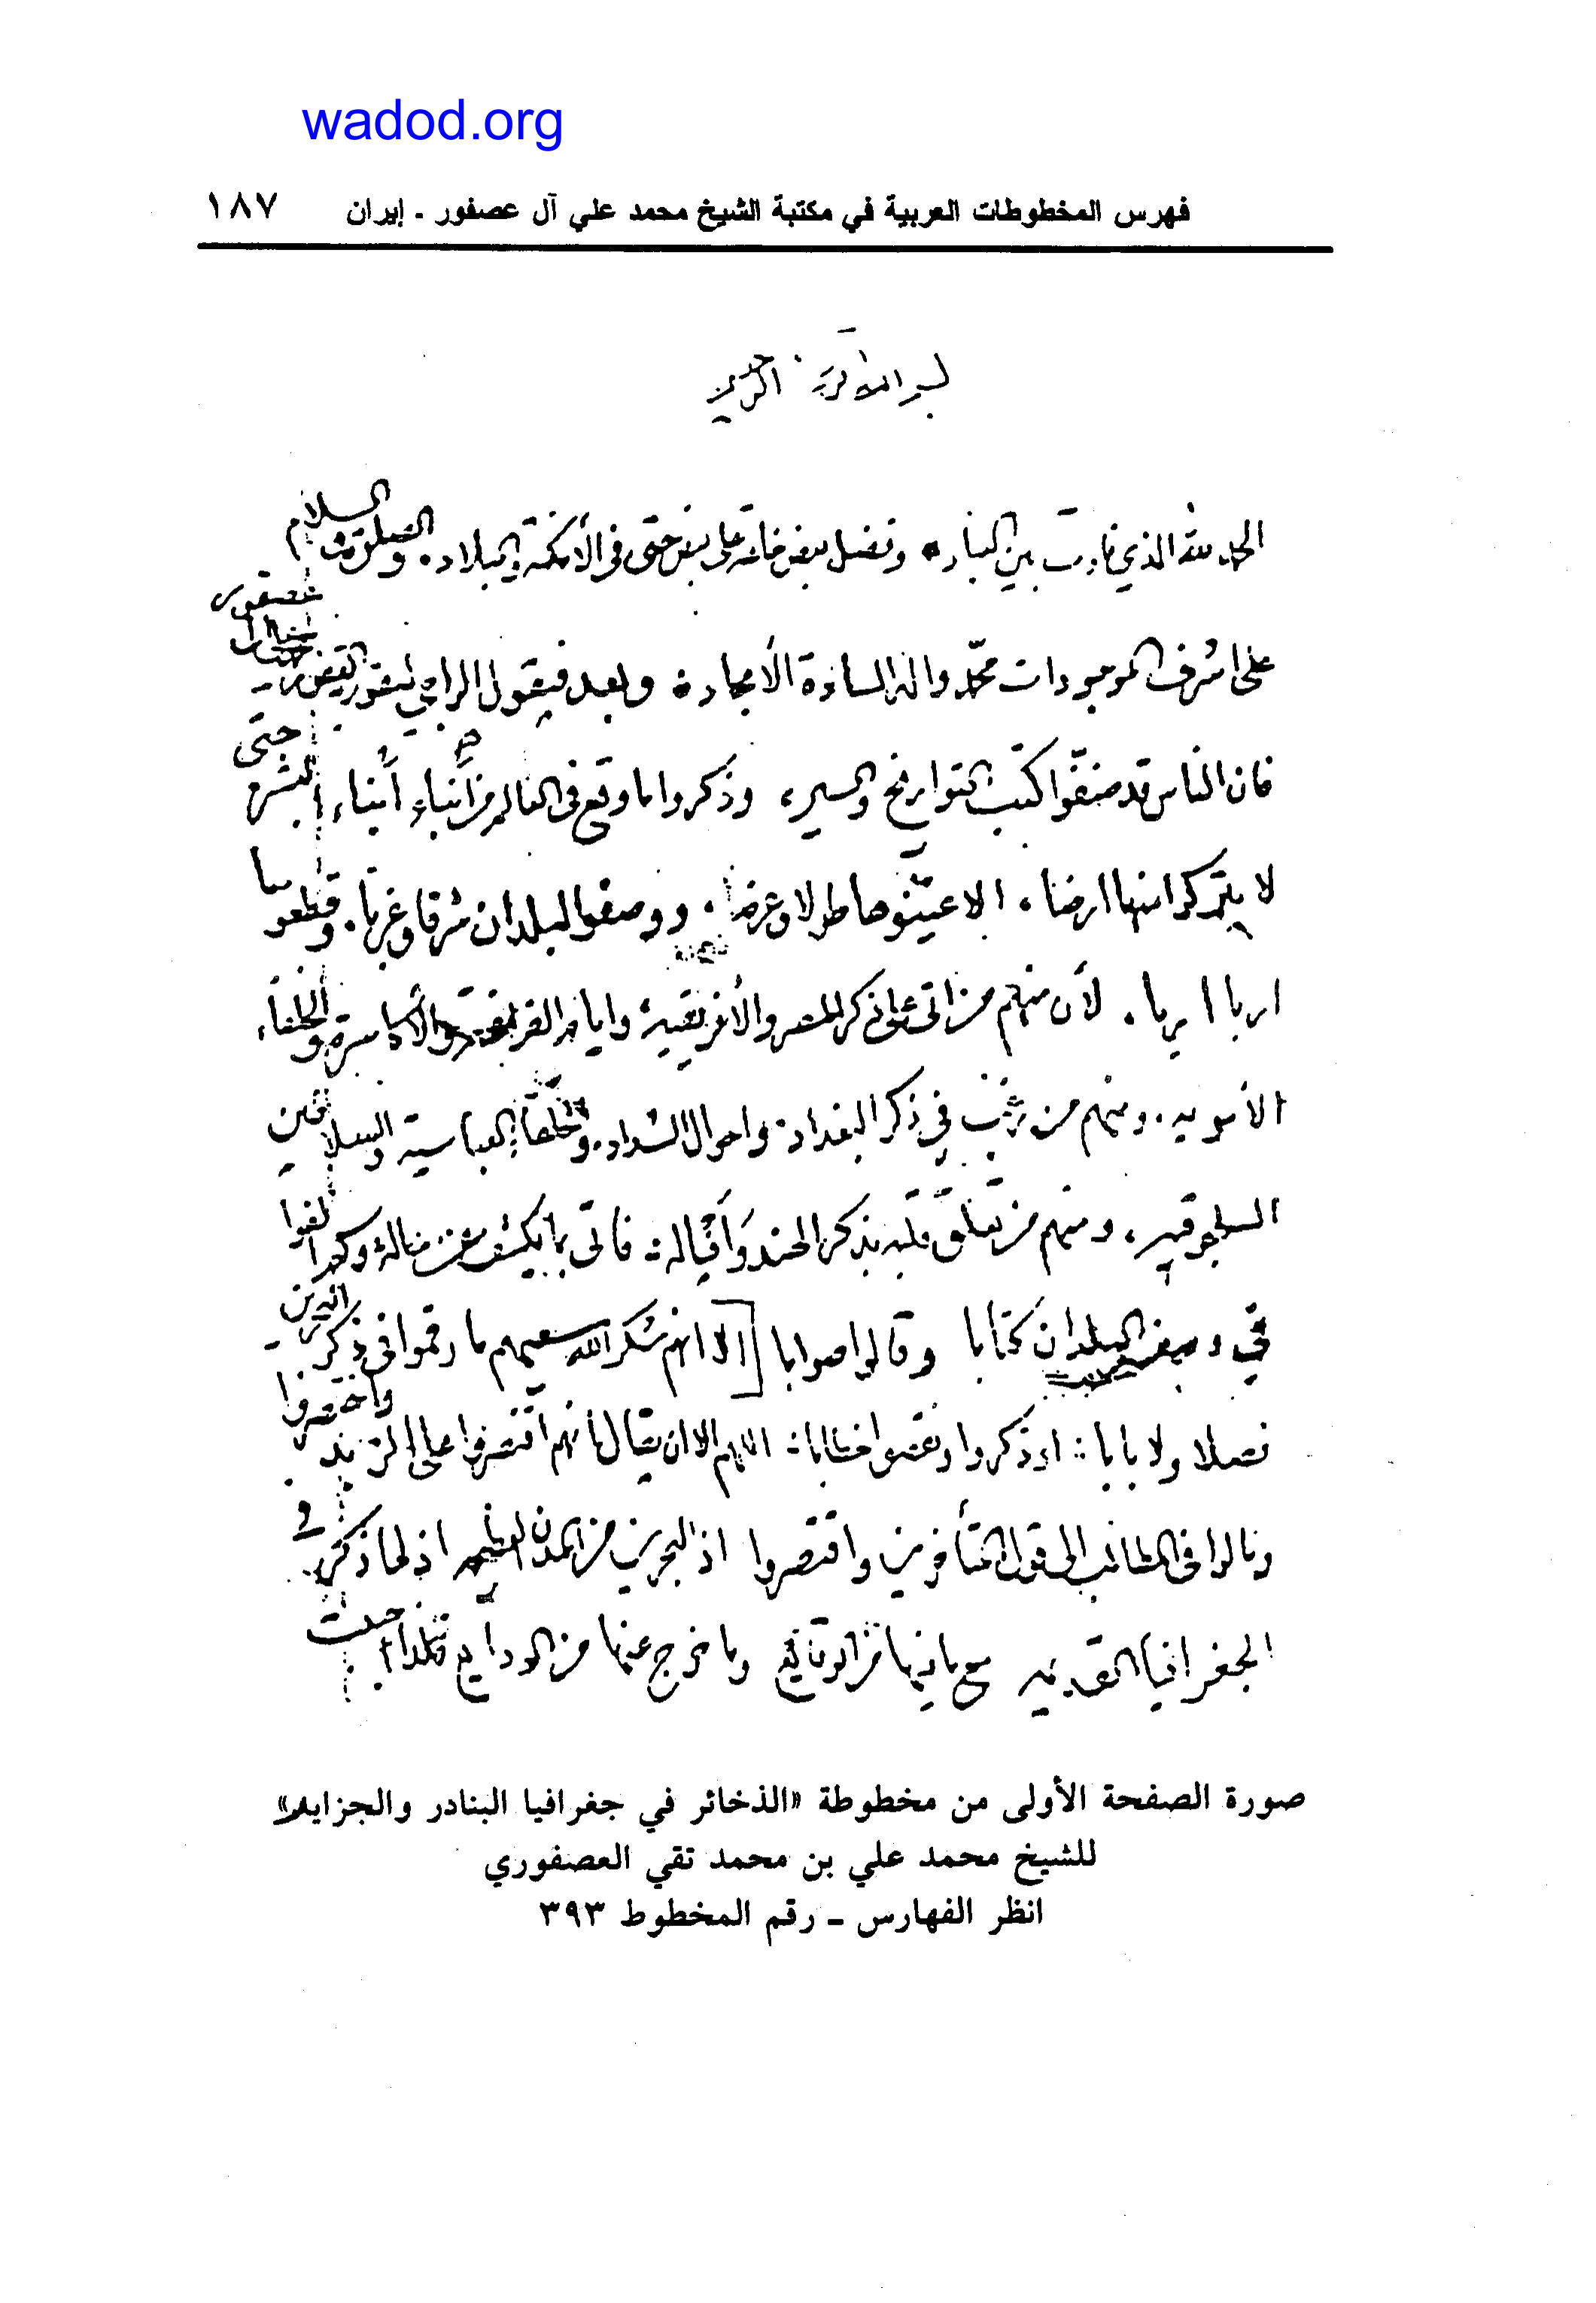 wadod.org
فهرس المخطوطات العربية في مكتبة الشيخ محمد علي آل عصفور ـ إيران ١٨٧
الحمد لله الذي فاوت بين العباد وفضل بعض خلقه على بعض حتى في الأمكنة والبلاد. والصلوة والسلام
على اشرف الموجودات محمّد واله السادة الأمجاد وبعد فيقول الراجي
فان الناس قد صنفّوا كتب التواريخ والسير، وذكروا ما وقع في العالم من أَنباء أَبناء البشر حتى
لا يتركوا منها ارضا، الا عيّنوها طولا وعرضا، ووصفوا البلدان شرقا وغربا. وقطعوها
اربا اربا. لأن منهم من اتى على ذكر المصر والأفريقية، وايام الفراعنة والأكاسرة والخلفاء
الأموية. ومنهم من رغّب في ذكر البغداد. واحوال السواد. والخلفاء العباسية والسلاطين
السلجوقية، ومنهم من تعلّق قلبه بذكر الهند وَأقياله: فاتى بما يكشف عن
في وصف البلدان كتابا وقالوا صوابا [الا انهم شكر الله سعيهم ما رقموا في ذكر البحرين
فصلا ولا بابا: او ذكروا ونقصوا خطابا: اللهم الا ان يقال بأنهم اقتصروا على واختصروا
ومالوا في المطالب الى قول المتأخرين واقتصروا اذ البحرين من المدن العظيمة اذ لها ذكر في
الجغرافيا القديمة مع ما فيها من الوقايع وما خرج عنها من الودايع
صورة الصفحة الأولى من مخطوطة «الذخائر في جغرافيا البنادر والجزاير»
للشيخ محمد علي بن محمد تقي العصفوري
انظر الفهارس ـ رقم المخطوط ٣٩٣